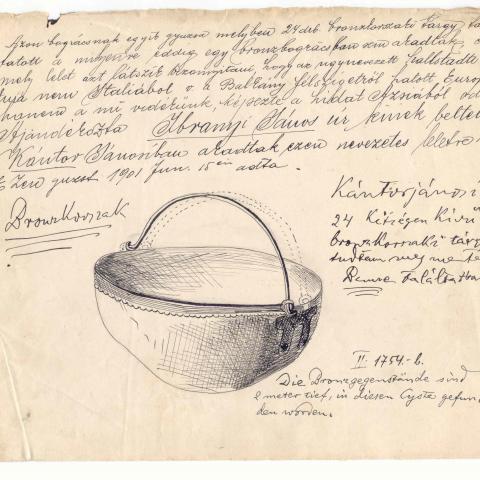 Azon bográcsnak egyik gyuszu melyben 24 drb. bronzkorszaki tárgy
találtatott a milyenre eddig egy bronzbográcsban sem akadtak
mely lelet azt látszik bizonyitani, hogy az ugynevezett hallstadti
nem Italiából v. a Balkány félszigetről jutott Euró
hanem a mi vidékünk képezte a hidat Ázsiából
Ajándékozta Ibrányi János úr kinek
Kántor Jánosiban akadtak ezen nevezetes leletre
Ezen 1901 Jun. 15én adta.
Bronzkorszak
Kántorjánosi
24 Kétségen Kivü
bronzkorszaki tárg
tudtam meg
Benne találtatta
II. 1754-b.
Die Bronzgegenstände sind
2 meter tief, in diesen Cysta gefun
den worden.